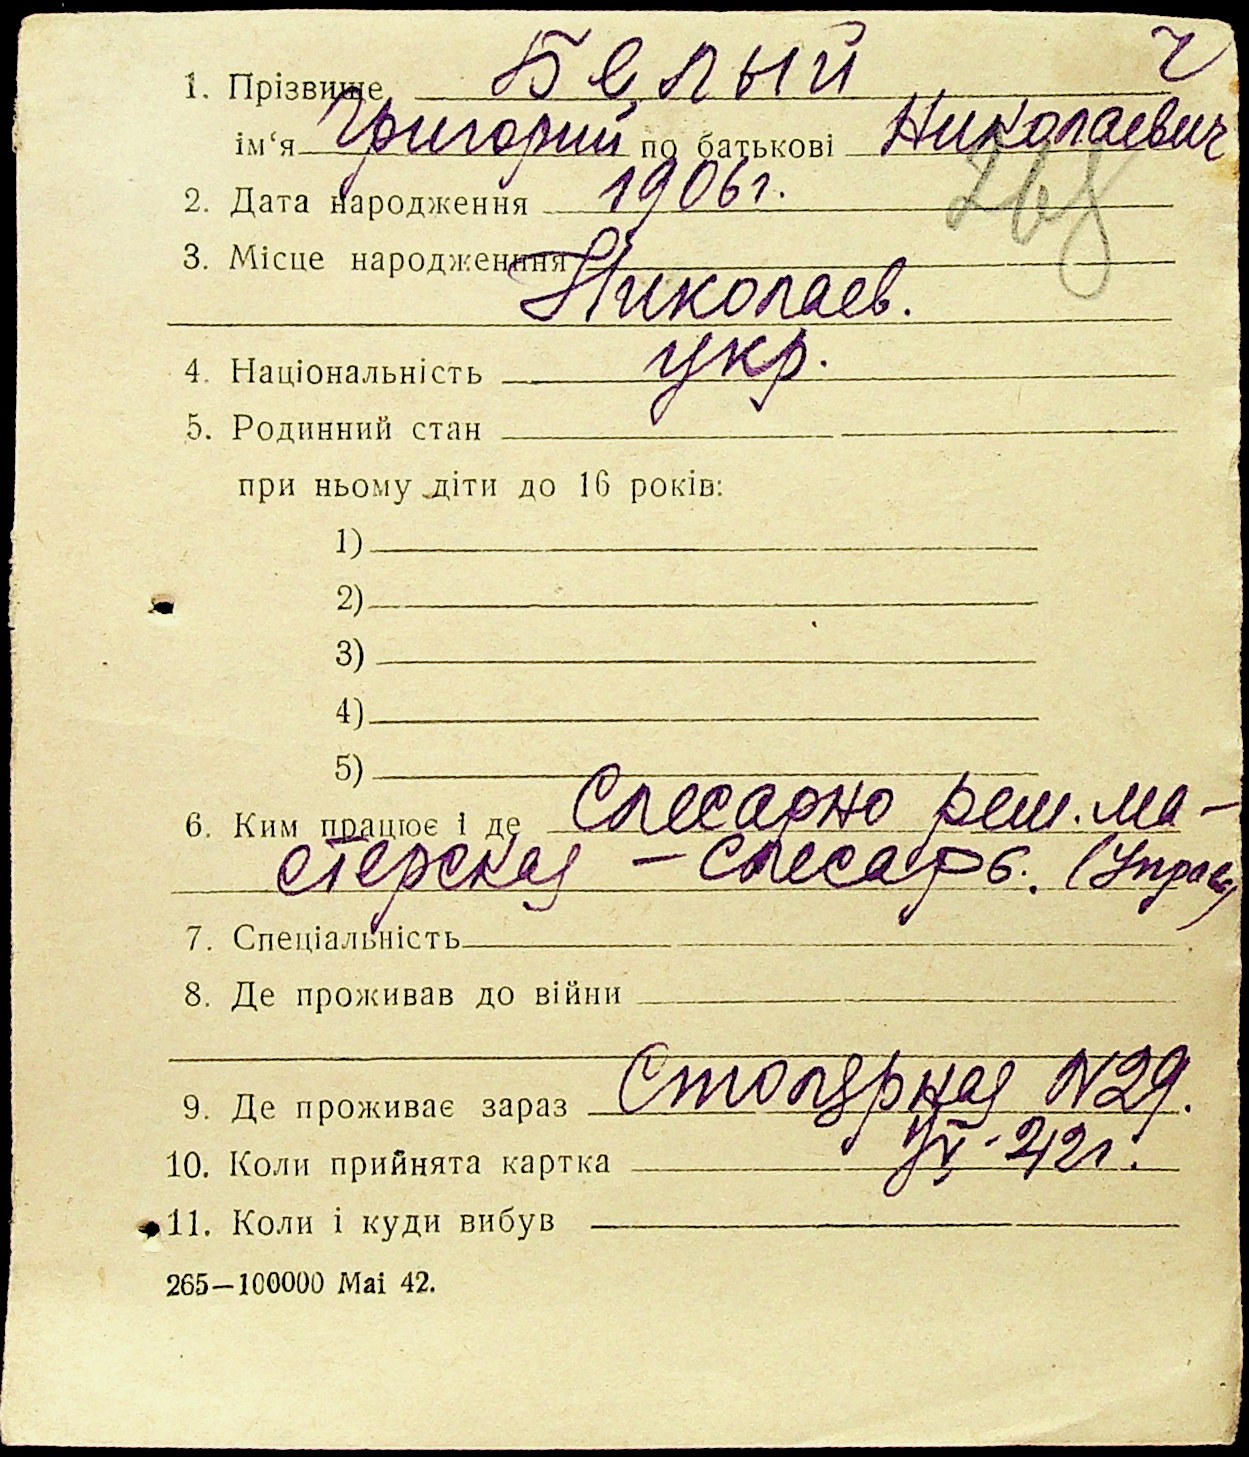 ч
1. Прізвище Белый
ім‘я Григорий по батькові Николаевич
268
2. Дата народження 1906 г.
3. Місце народженння
Николаев.
4. Національність укр.
5. Родинний стан
при ньому діти до 16 років:
1)
2)
3)
4)
5)
6. Ким працює і де Слесарно рем. ма-
стерская – слесарь. (Управ)
7. Спеціальність
8. Де проживав до війни
9. Де проживає зараз Столярная N 29.
10. Коли прийнята картка 42 г.
11. Коли і куди вибув
265—100000 Маі 42.